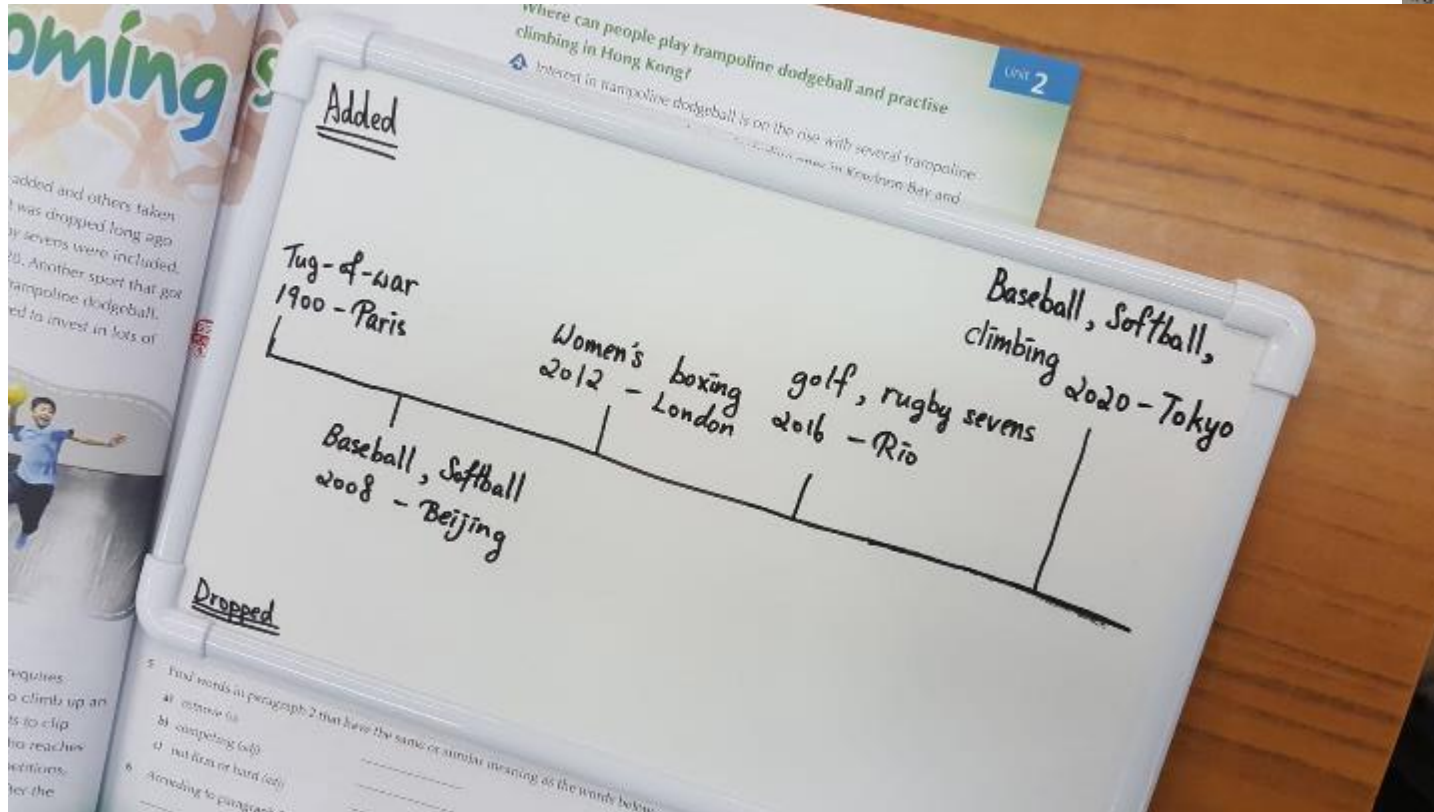 oming s
added and others taken
was dropped long ago
y sevens were included.
Another sport that got
rampoline dodgeball.
ed to invest in lots of
Where can people play trampoline dodgeball and practise
climbing in Hong Kong?
4 Interest in trampoline dodgeball is on the rise with several trampoline
in Kowloon Bay and
Unit 2
Added
Tug-of-war
1900 - Paris
Baseball, Softball
2008 - Beijing
Women's boxing
2012 - London
golf, rugby sevens
2016 - Rio
Baseball, Softball,
climbing
2020 - Tokyo
Dropped
requires
o climb up an
s to clip
ho reaches
petitions,
her the
5 Find words in paragraph 2 that have the same or similar meaning as the words below
a) remove (v)
b) competing (adj)
c) not firm or hard (adj)
6 According to paragraph